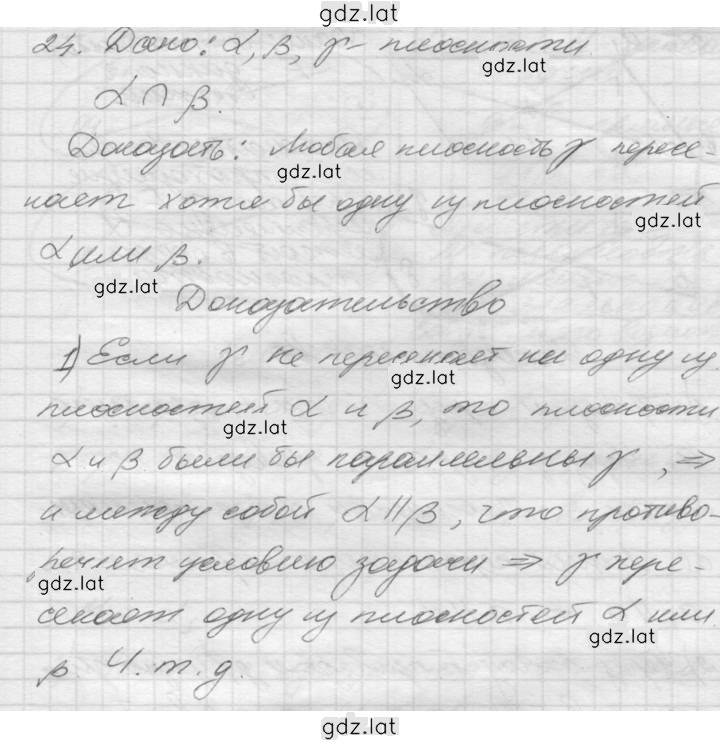 gdz.lat
24. Дано: α, β, γ - плоскости.
gdz.lat
α ∩ β.
Доказать: Любая плоскость γ пересе-
gdz.lat
кает хотя бы одну из плоскостей
gdz.lat
α или β.
gdz.lat
Доказательство
1) Если γ не пересекает ни одну из
gdz.lat
плоскостей α и β, то плоскости
gdz.lat
α и β были бы параллельны γ, ⇒
и между собой α || β, что противо-
речит условию задачи ⇒ γ пере-
gdz.lat
секает одну из плоскостей α или
gdz.lat
β Ч.т.д.
gdz.lat